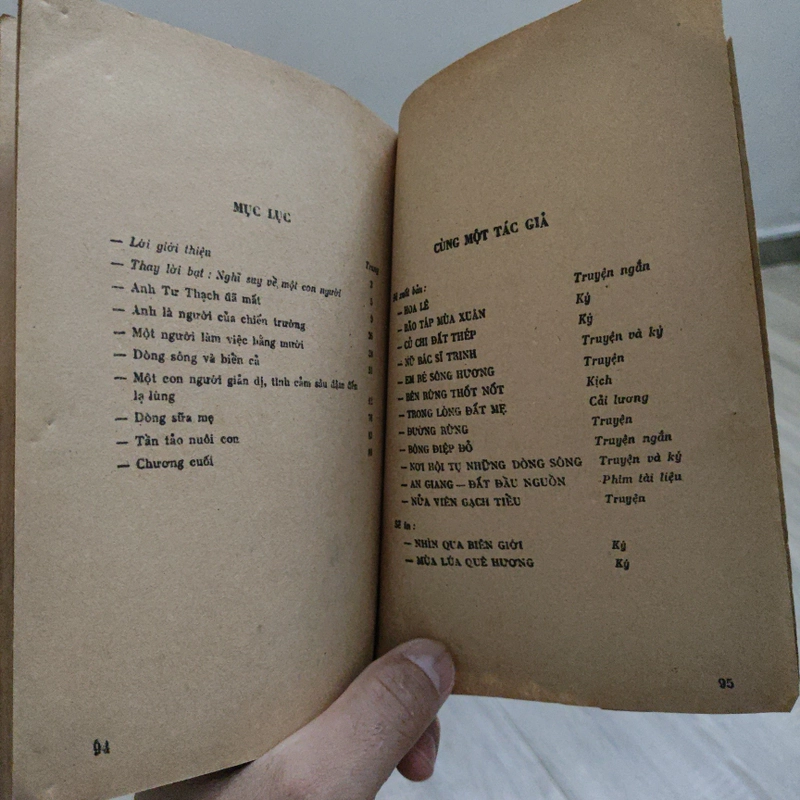 MỤC LỤC
Trang
— Lời giới thiện
— Thay lời bạt : Nghĩ suy về một con người
— Anh Tư Thạch đã mất
— Anh là người của chiến trường
— Một người làm việc bằng mười
— Dòng sông và biển cả
— Một con người giản dị, tình cảm sâu đậm đến
lạ lùng
— Dòng sữa mẹ
— Tần tảo nuôi con
— Chương cuối
94
CÙNG MỘT TÁC GIẢ
Đã xuất bản :
— HOA LÊ Truyện ngắn
— BÃO TÁP MÙA XUÂN Ký
— CỦ CHI ĐẤT THÉP Ký
— NỮ BÁC SĨ TRINH Truyện và ký
— EM BÉ SÔNG HƯƠNG Truyện
— BÊN RỪNG THỐT NỐT Kịch
— TRONG LÒNG ĐẤT MẸ Cải lương
— ĐƯỜNG RỪNG Truyện
— BÔNG ĐIỆP ĐỎ Truyện ngắn
— NƠI HỘI TỤ NHỮNG DÒNG SÔNG Truyện và ký
— AN GIANG — ĐẤT ĐẦU NGUỒN Phim tài liệu
— NỬA VIÊN GẠCH TIỀU Truyện
Sẽ in :
— NHÌN QUA BIÊN GIỚI Ký
— MÙA LÚA QUÊ HƯƠNG Ký
95